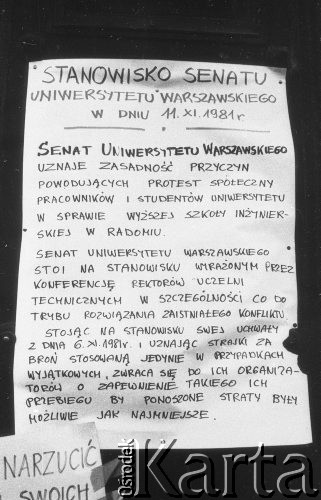 STANOWISKO SENATU
UNIWERSYTETU WARSZAWSKIEGO
W DNIU 11. XI. 1981 r
SENAT UNIWERSYTETU WARSZAWSKIEGO
UZNAJE ZASADNOŚĆ PRZYCZYN
POWODUJĄCYCH PROTEST SPOŁECZNY
PRACOWNIKÓW I STUDENTÓW UNIWERSYTETU
W SPRAWIE WYŻSZEJ SZKOŁY INŻYNIER-
SKIEJ W RADOMIU.
SENAT UNIWERSYTETU WARSZAWSKIEGO
STOI NA STANOWISKU WYRAŻONYM PRZEZ
KONFERENCJĘ REKTORÓW UCZELNI
TECHNICZNYCH W SZCZEGÓLNOŚCI CO DO
TRYBU ROZWIĄZANIA ZAISTNIAŁEGO KONFLIKTU.
STOJĄC NA STANOWISKU SWEJ UCHWAŁY
Z DNIA 6. XI. 1981r. I UZNAJĄC STRAJKI ZA
BROŃ STOSOWANĄ JEDYNIE W PRZYPADKACH
WYJĄTKOWYCH, ZWRACA SIĘ DO ICH ORGANIZA-
TORÓW O ZAPEWNIENIE TAKIEGO ICH
PRZEBIEGU BY PONOSZONE STRATY BYŁY
MOŻLIWIE JAK NAJMNIEJSZE.
NARZUCIĆ
SWOICH
ośrodek Karta